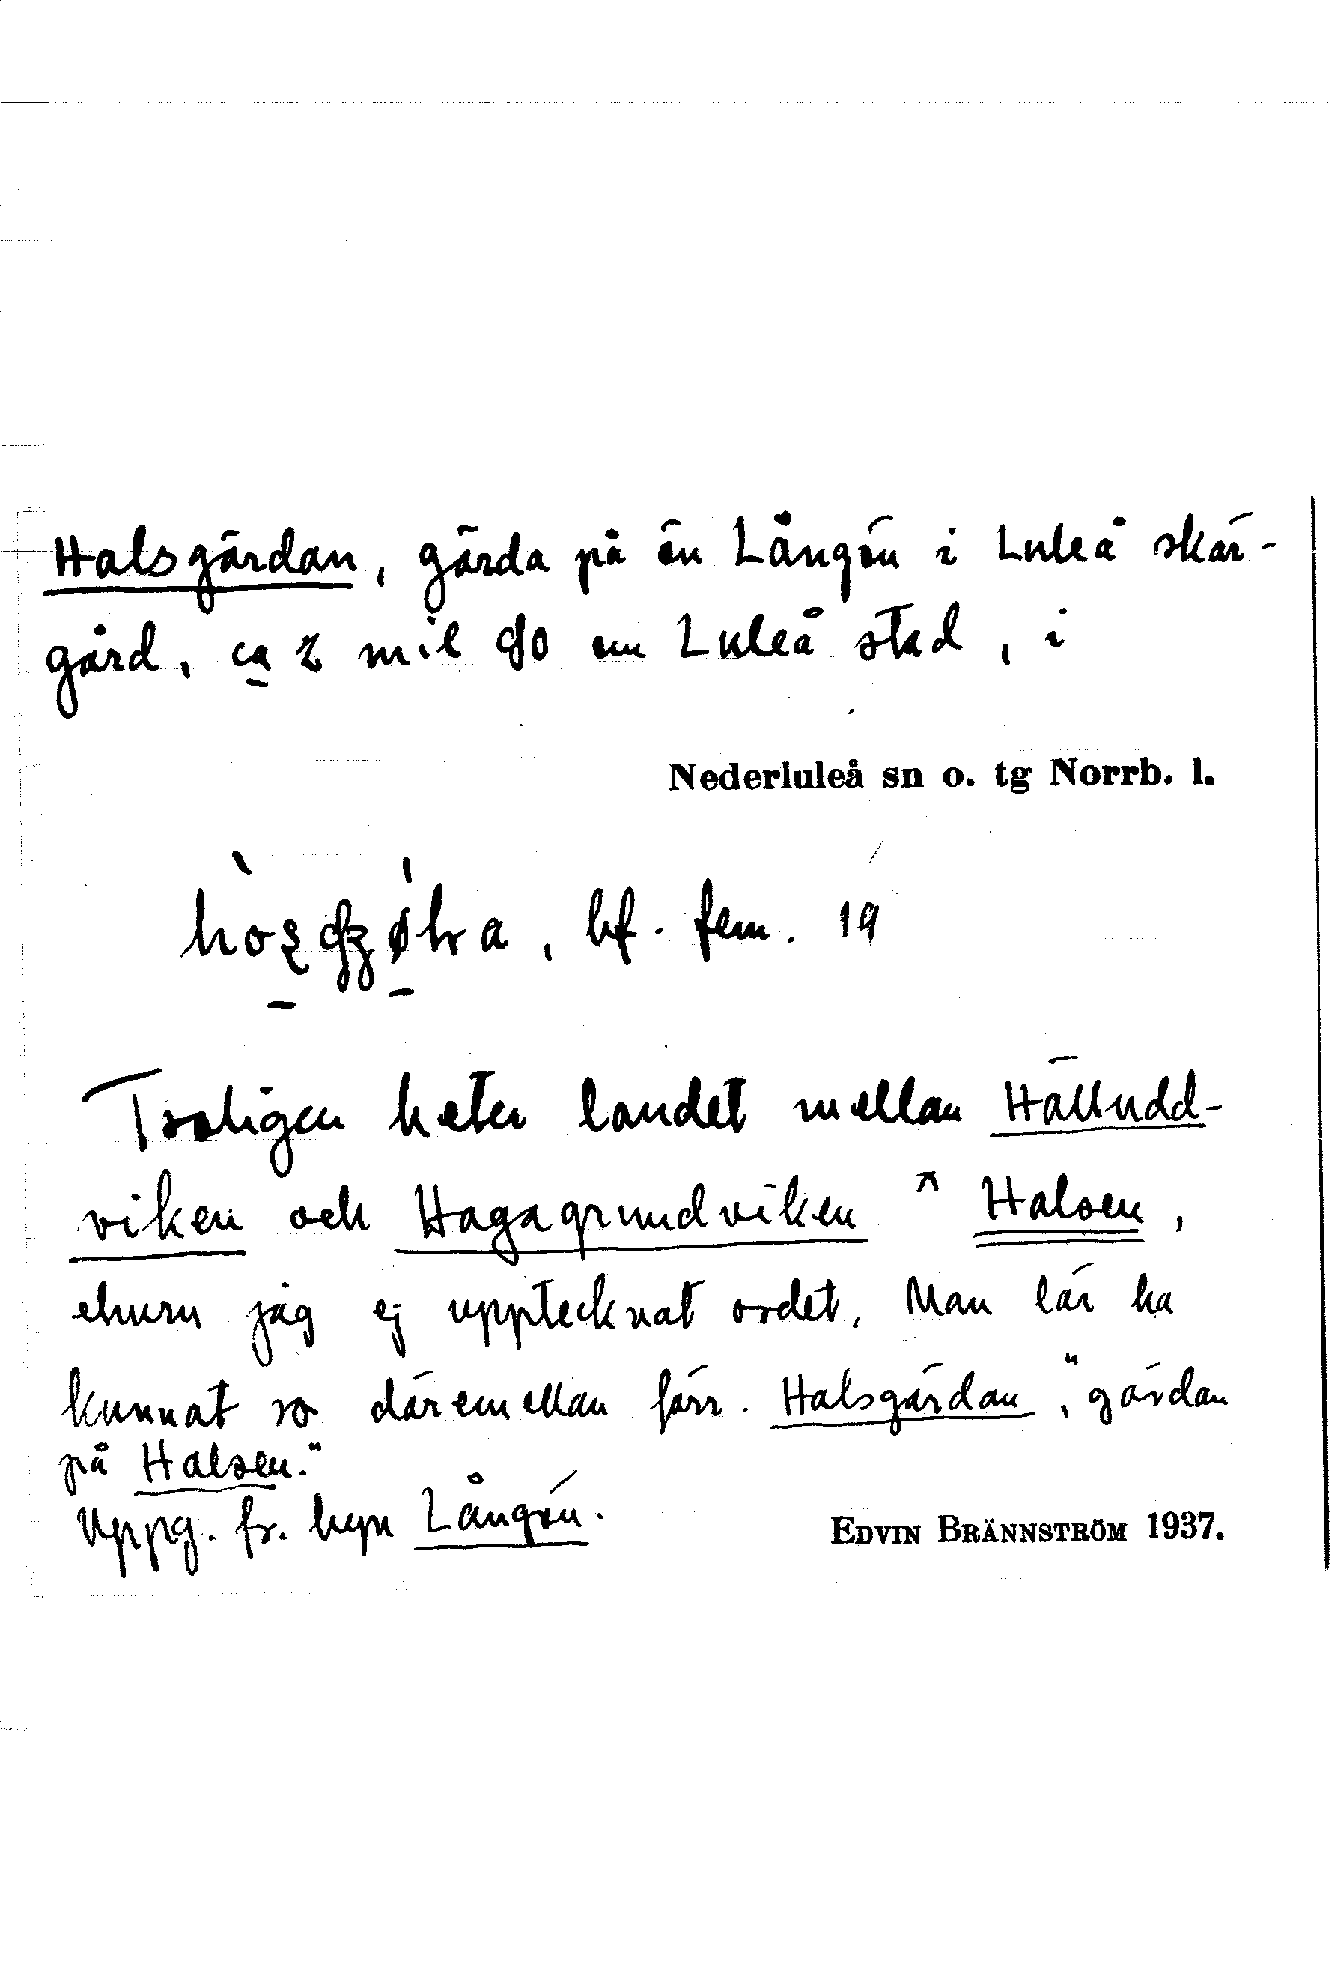 Halsgärdan, gärda på ön Långön i Luleå skär-
gård, ca 2 mil SO om Luleå stad, i
Nederluleå sn o. tg Norrb. l.
bf. fem. 19
Troligen heter landet mellan Hälludd-
viken och Hagagrundviken Halsen,
ehuru jag ej upptecknat ordet. Man lär ha
kunnat ro däremellan förr. Halsgärdan, "gärdan
på Halsen."
Uppg. fr. byn Långön.
EDVIN BRÄNNSTRÖM 1937.